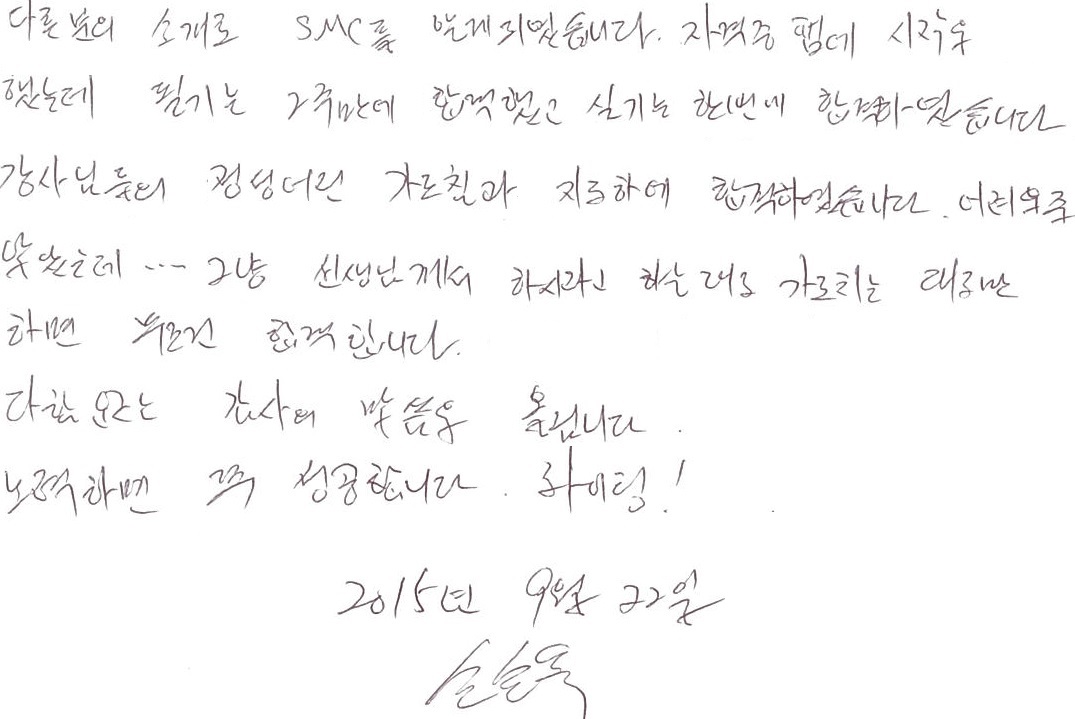 다른 분의 소개로 SMC를 알게 되었습니다. 자격증 땜에 시작을
했는데 필기는 2주만에 합격했고 실기는 한번에 합격하였습니다
강사님들의 정성어린 가르침과 지도하에 합격하였습니다. 어려울줄
알았는데 ... 그냥 선생님께서 하시라고 하는대로 가르치는 대로만
하면 무조건 합격합니다.
다시 감사의 말씀을 올립니다.
노력하면 꼭 성공합니다. 화이팅!
2015년 9월 22일